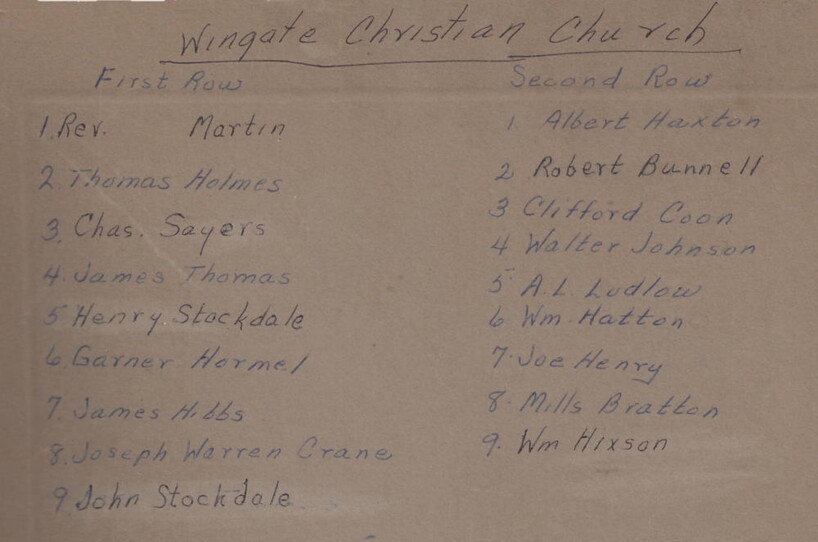 Wingate Christian Church
First Row
1. Rev. Martin
2. Thomas Holmes
3. Chas. Sayers
4. James Thomas
5 Henry Stockdale
6. Garner Hormel
7. James Hibbs
8. Joseph Warren Crane
9 John Stockdale
Second Row
1 Albert Haxton
2 Robert Bunnell
3 Clifford Coon
4 Walter Johnson
5 A.L. Ludlow
6 Wm. Hatton
7. Joe Henry
8. Mills Bratton
9. Wm Hixson